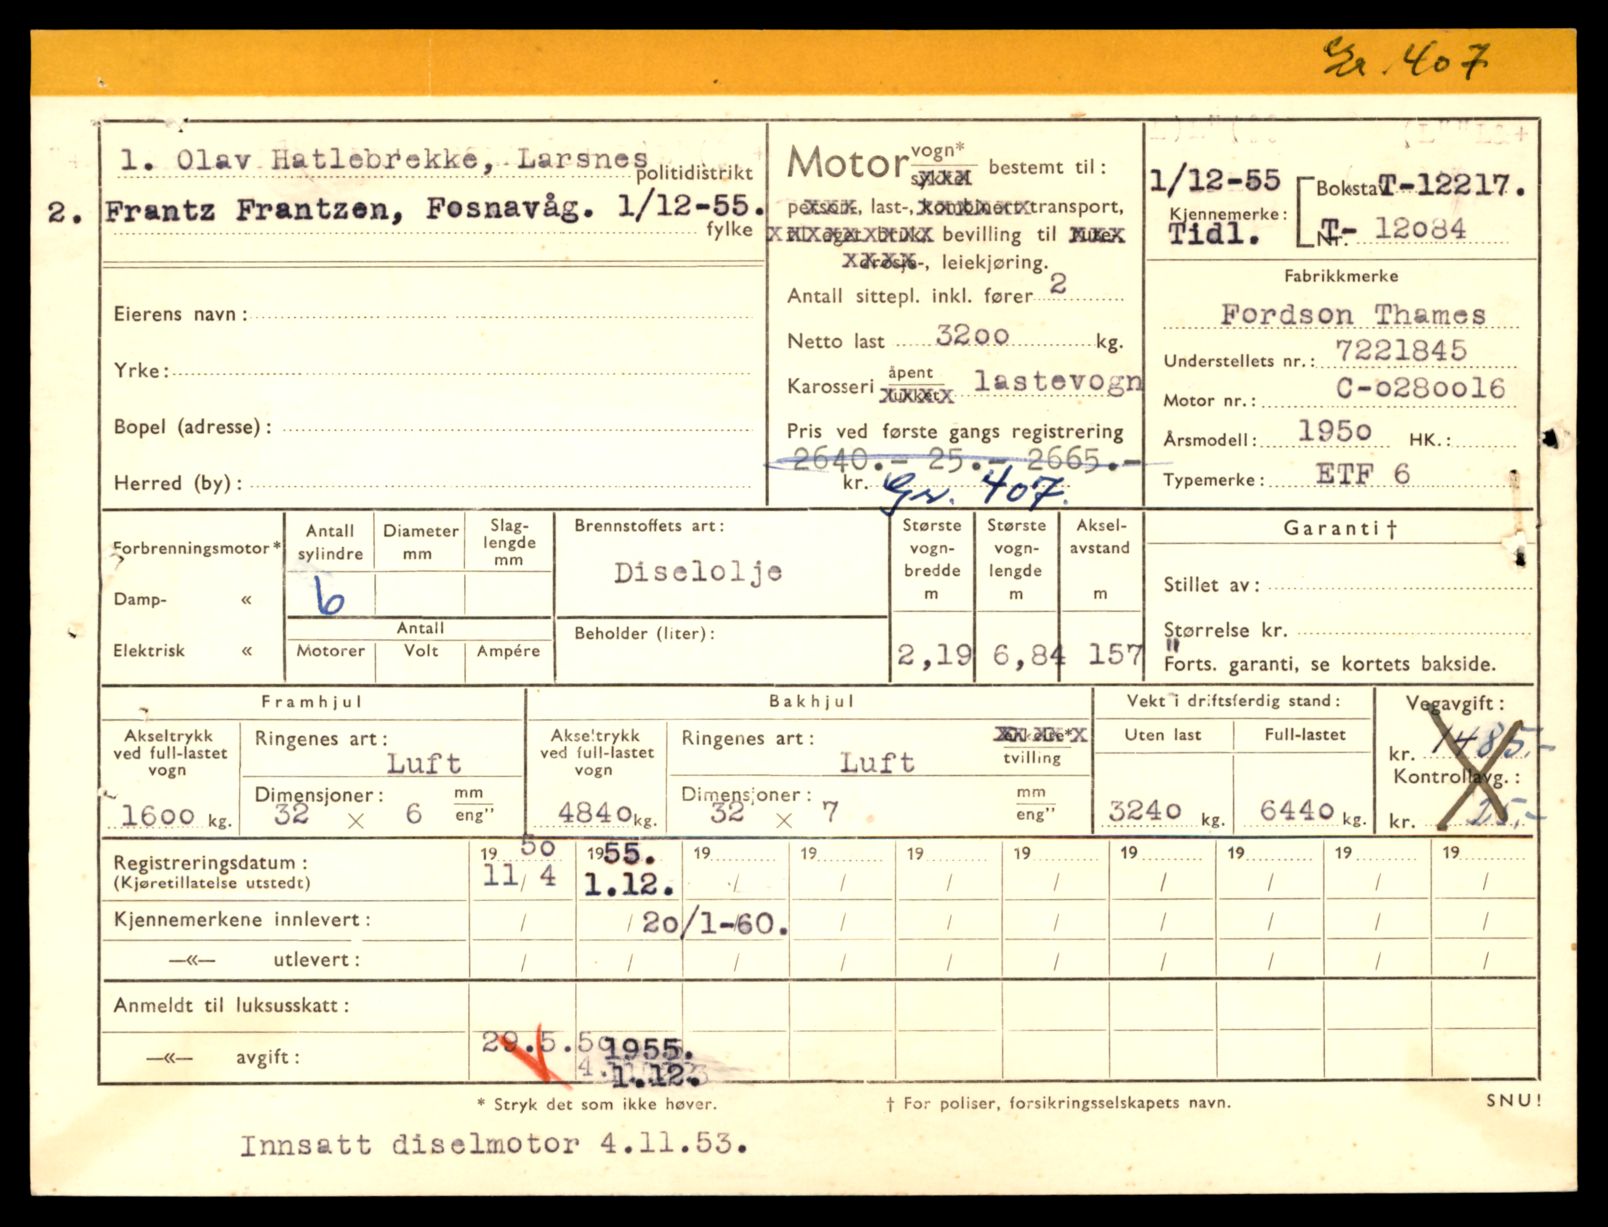 Gr. 407
1. Olav Hatlebrekke, Larsnes politidistrikt
2. Frantz Frantzen, Fosnavåg. 1/12-55. fylke
Eierens navn:
Yrke:
Bopel (adresse):
Herred (by):
Motor vogn* sykkel bestemt til:
person-, last-, kombinert transport,
til eget bruk, bevilling til rute-
drosje-, leiekjøring.
Antall sittepl. inkl. fører 2
Netto last 3200 kg.
Karosseri åpent lukket lastevogn
Pris ved første gangs registrering
2640.- 25.- 2665.-
kr. Gr. 407.
1/12-55 Bokstav T-12217.
Kjennemerke:
Tidl. Nr. T- 12084
Fabrikkmerke
Fordson Thames
Understellets nr.: 7221845
Motor nr.: C-0280016
Årsmodell: 1950 HK.:
Typemerke: ETF 6
Forbrenningsmotor*
Damp- «
Elektrisk «
Antall sylindre Diameter mm Slag-lengde mm
6
Antall
Motorer Volt Ampére
Brennstoffets art:
Diselolje
Beholder (liter):
Største vogn-bredde m Største vogn-lengde m Aksel-avstand m
2,19 6,84 157"
Garanti †
Stillet av:
Størrelse kr.
Forts. garanti, se kortets bakside.
Framhjul
Akseltrykk ved full-lastet vogn
1600 kg.
Ringenes art:
Luft
Dimensjoner: mm
32 × 6 eng"
Bakhjul
Akseltrykk ved full-lastet vogn
4840 kg.
Ringenes art: enkelte* tvilling
Luft
Dimensjoner: mm
32 × 7 eng"
Vekt i driftsferdig stand:
Uten last Full-lastet
3240 kg. 6440 kg.
Vegavgift:
kr. 1485.-
Kontrollavg.:
kr. 25.-
Registreringsdatum: 19 50 19 55. 19 19 19 19 19 19 19 19
(Kjøretillatelse utstedt) 11/4 1.12. / / / / / / / /
Kjennemerkene innlevert: / / 20/1-60. / / / / / / /
—«— utlevert: / / / / / / / / / /
Anmeldt til luksusskatt:
—«— avgift: 29.5.50 1955.
1.12.
* Stryk det som ikke høver. † For poliser, forsikringsselskapets navn. SNU!
Innsatt diselmotor 4.11.53.